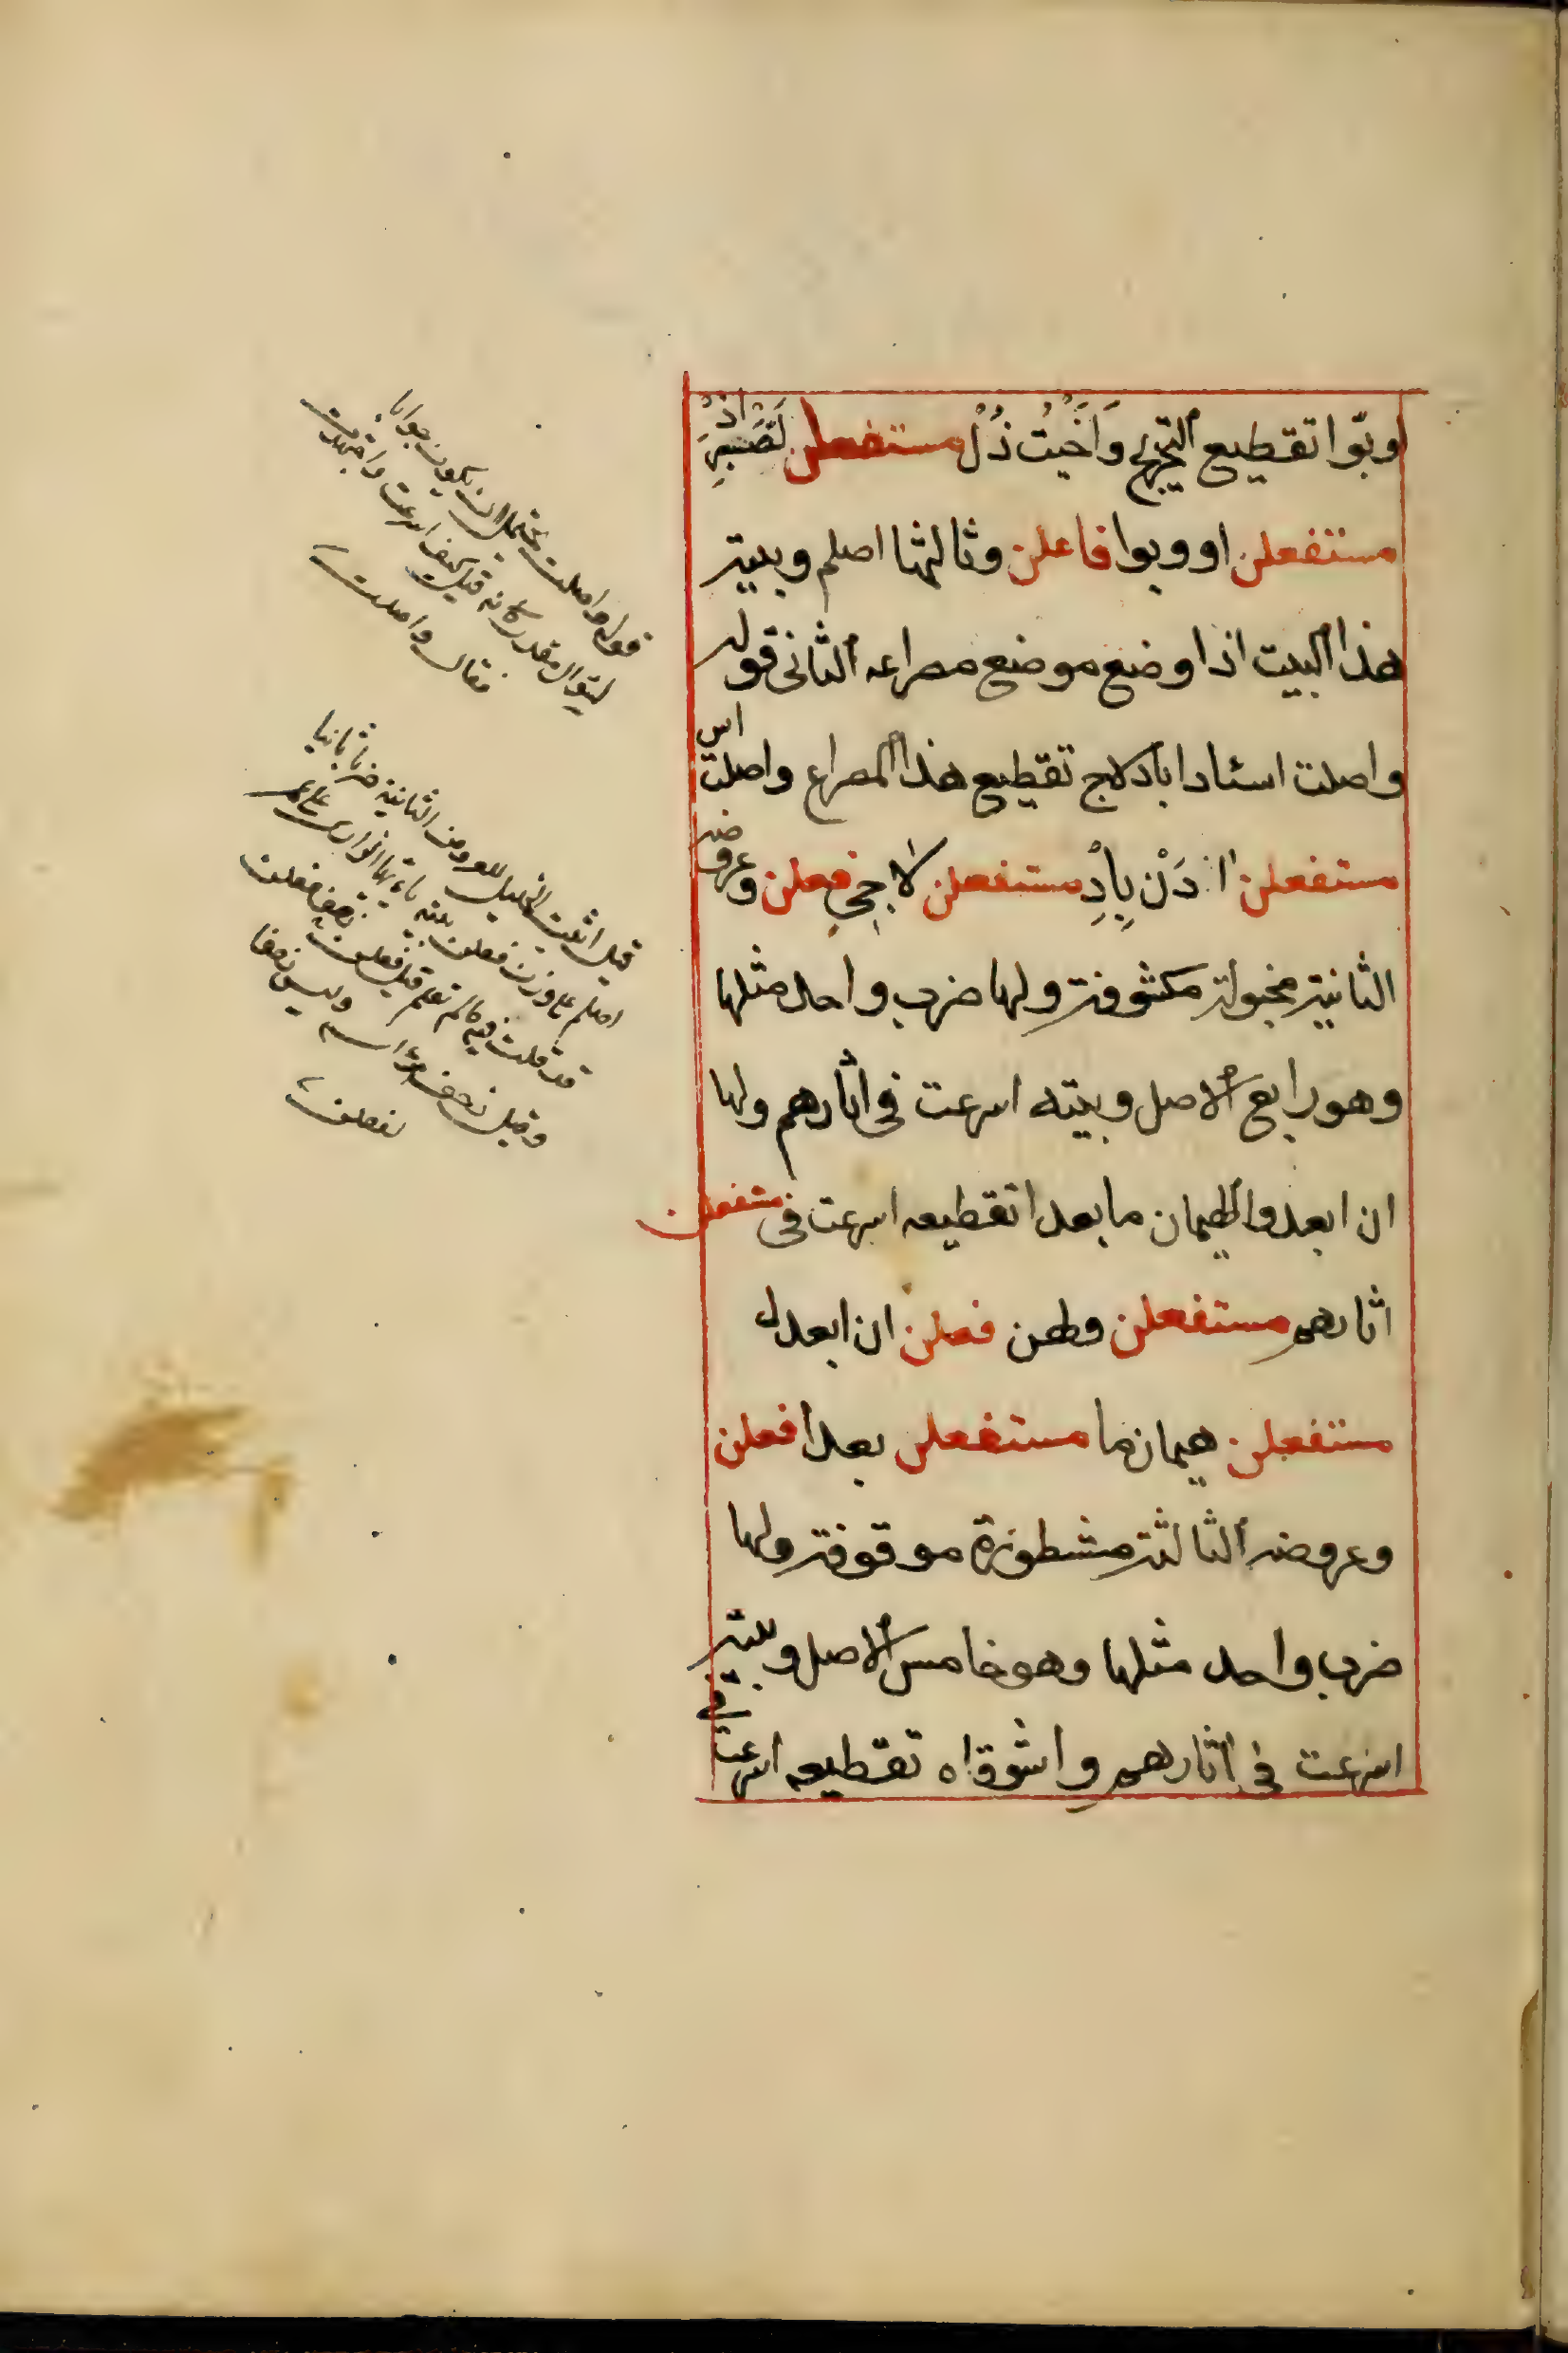 اوبّوا تقطيع التجزي وَاخَيتُ ذُلْ مستفعلن لتَصَبرِ اذ
مستفعلن اووبوا فاعلن وثالثها اصلم وبيته
هذا البيت اذا وضع موضع مصراعه الثانى قوله
واصلت اسئادا بادلاج تقطيع هذا المصراع واصلت اس
مستفعلن اادَنْ بِادِ مستفعلن لاجِى فعلن وعروضه
الثانية مخبولة مكشوفة ولها ضرب واحد مثلها
وهو رابع الاصل وبيته اسرعت فى اثارهم ولها
ان ابعدوا لهيمان ما بعدا تقطيعه اسرعت فى مستفعلن
اثارهم مستفعلن ولهن فعلن ان ابعدل
مستفعلن هيمان ما مستفعلن بعدا فعلن
وعروضه الثالثة مشطورة موقوفة ولها
ضرب واحد مثلها وهو خامس الاصل وبيته
اسرعت فى اثارهم واشوقاه تقطيعه اسرعت فى
قوله واصلت يحتمل ان يكون جوابا
لسؤال مقدر كانه قيل كيف اسرعت واجتهدت
فقال واصلت
قيل اثبت الخليل للعروض الثانية ضربا ثانيا
اصلم على وزن فعلن بيته يا ايها الزارى على عمر
قد قلت فيه غير ما تعلم قيل فعلن